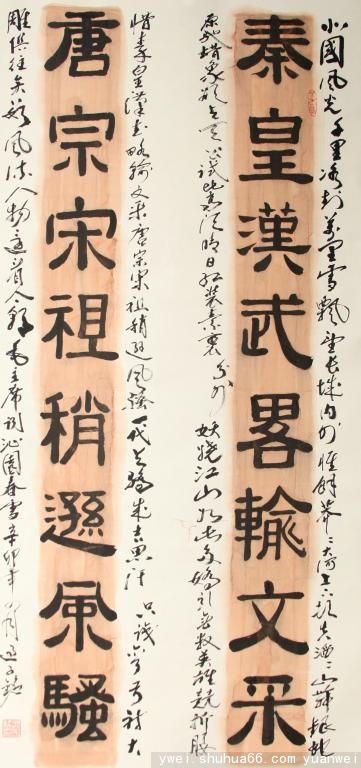 秦皇漢武畧輸文采
唐宗宋祖稍遜風騷
北國風光千里冰封萬里雪飄望長城內外惟餘莽〻大河上下頓失滔〻山舞銀蛇
原馳蠟象欲與天公試比高須晴日紅裝素裹分外妖嬈江山如此多嬌引無數英雄競折腰
惜秦皇漢武略輸文采唐宗宋祖稍遜風騷一代天驕成吉思汗只識彎弓射大
雕俱往矣數風流人物還看今朝毛主席詞沁園春雪辛卯年
ywei.shuhua66.com/yuanwei